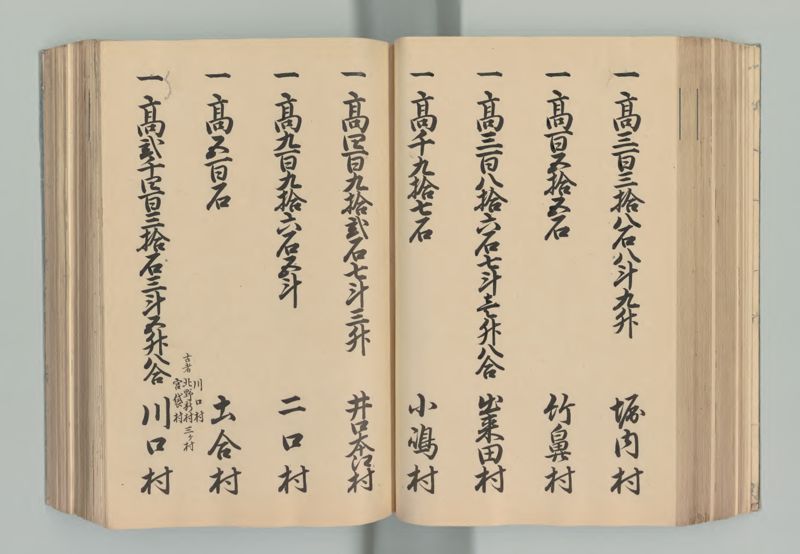 一高三百三拾八石八斗九升 堀内村
一高百五拾五石 竹鼻村
一高三百八拾六石七斗壱升八合 出来田村
一高千九拾七石 小嶋村
一高四百九拾弐石七斗三升 井口本江村
一高九百九拾六石五斗 二口村
一高五百石 土合村
古者 川口村 北野新村 宮袋村 三ケ村
一高弐千四百三拾石三斗五升八合 川口村